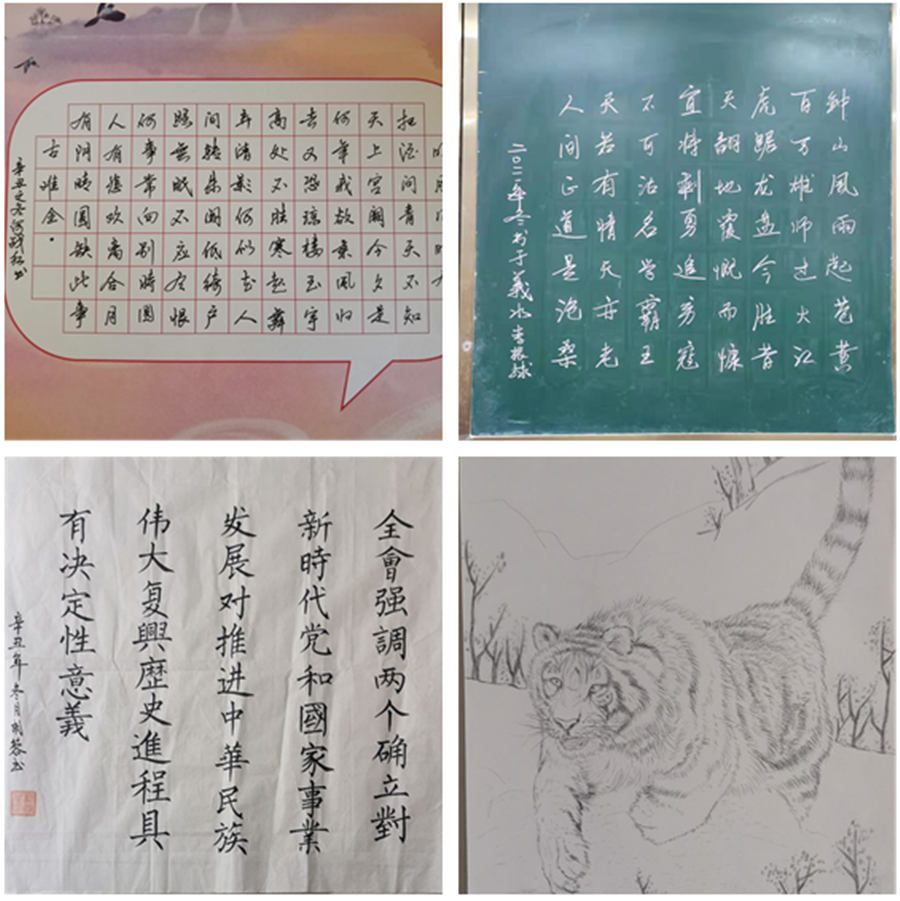 把酒问青天不知
天上宫阙今夕是
何年我欲乘风归
去又恐琼楼玉宇
高处不胜寒起舞
弄清影何似在人
间转朱阁低绮户
照无眠不应有恨
何事常向别时圆
人有悲欢离合月
有阴晴圆缺此事
古难全。
辛丑之冬何战红书
钟山風雨起苍黄
百万雄师过大江
虎踞龙盘今胜昔
天翻地覆慨而慷
宜将剩勇追穷寇
不可沽名学霸王
天若有情天亦老
人间正道是沧桑
二〇二一年冬书于義水李振球
全會强調两个确立對
新時代党和國家事業
发展对推进中華民族
伟大复興歷史進程具
有决定性意義
辛丑年冬月刘蓉书